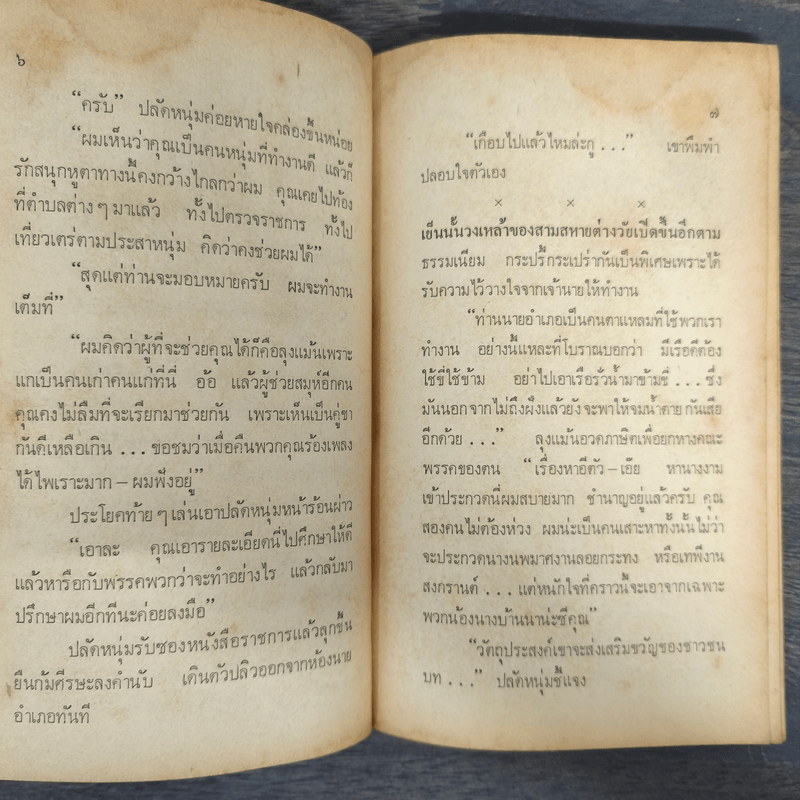 ๖
“ครับ” ปลัดหนุ่มค่อยหายใจคล่องขึ้นหน่อย
“ผมเห็นว่าคุณเป็นคนหนุ่มที่ทำงานดี แล้วก็
รักสนุกหูตาทางนี้คงกว้างไกลกว่าผม คุณเคยไปท้อง
ที่ตำบลต่าง ๆ มาแล้ว ทั้งไปตรวจราชการ ทั้งไป
เที่ยวเตร่ตามประสาหนุ่ม คิดว่าคงช่วยผมได้”
“สุดแต่ท่านจะมอบหมายครับ ผมจะทำงาน
เต็มที่”
“ผมคิดว่าผู้ที่จะช่วยคุณได้ก็คือลุงแม้นเพราะ
แกเป็นคนเก่าคนแก่ที่นี่ อ้อ แล้วผู้ช่วยสมุห์อีกคน
คุณคงไม่ลืมที่จะเรียกมาช่วยกัน เพราะเห็นเป็นคู่ขา
กันดีเหลือเกิน ... ขอชมว่าเมื่อคืนพวกคุณร้องเพลง
ได้ไพเราะมาก – ผมฟังอยู่”
ประโยคท้าย ๆ เล่นเอาปลัดหนุ่มหน้าร้อนผ่าว
“เอาละ คุณเอารายละเอียดนี่ไปศึกษาให้ดี
แล้วหารือกับพรรคพวกว่าจะทำอย่างไร แล้วกลับมา
ปรึกษาผมอีกทีนะค่อยลงมือ”
ปลัดหนุ่มรับซองหนังสือราชการแล้วลุกขึ้น
ยืนก้มศีรษะลงคำนับ เดินตัวปลิวออกจากห้องนาย
อำเภอทันที
๗
“เกือบไปแล้วไหมล่ะกู ...” เขาพึมพำ
ปลอบใจตัวเอง
× × ×
เย็นนั้นวงเหล้าของสามสหายต่างวัยเปิดขึ้นอีกตาม
ธรรมเนียม กระปรี้กระเปร่ากันเป็นพิเศษเพราะได้
รับความไว้วางใจจากเจ้านายให้ทำงาน
“ท่านนายอำเภอเป็นคนตาแหลมที่ใช้พวกเรา
ทำงาน อย่างนี้แหละที่โบราณบอกว่า มีเรือดีต้อง
ใช้ขี่ใช้ข้าม อย่าไปเอาเรือรั่วน้ำมาข้ามขี่ ... ซึ่ง
มันนอกจากไม่ถึงฝั่งแล้วยังจะพาให้จมน้ำตายกันเสีย
อีกด้วย ...” ลุงแม้นอวดภาษิตเพื่อยกหางคณะ
พรรคของตน “เรื่องหาอีตัว – เอ๊ย หานางงาม
เข้าประกวดนี่ผมสบายมาก ชำนาญอยู่แล้วครับ คุณ
สองคนไม่ต้องห่วง ผมน่ะเป็นคนเสาะหาทั้งนั้นไม่ว่า
จะประกวดนางนพมาศงานลอยกระทง หรือเทพีงาน
สงกรานต์ ... แต่หนักใจที่คราวนี้จะเอาจากเฉพาะ
พวกน้องนางบ้านนาน่ะซีคุณ”
“วัตถุประสงค์เขาจะส่งเสริมขวัญของชาวชน
บท ...” ปลัดหนุ่มชี้แจง